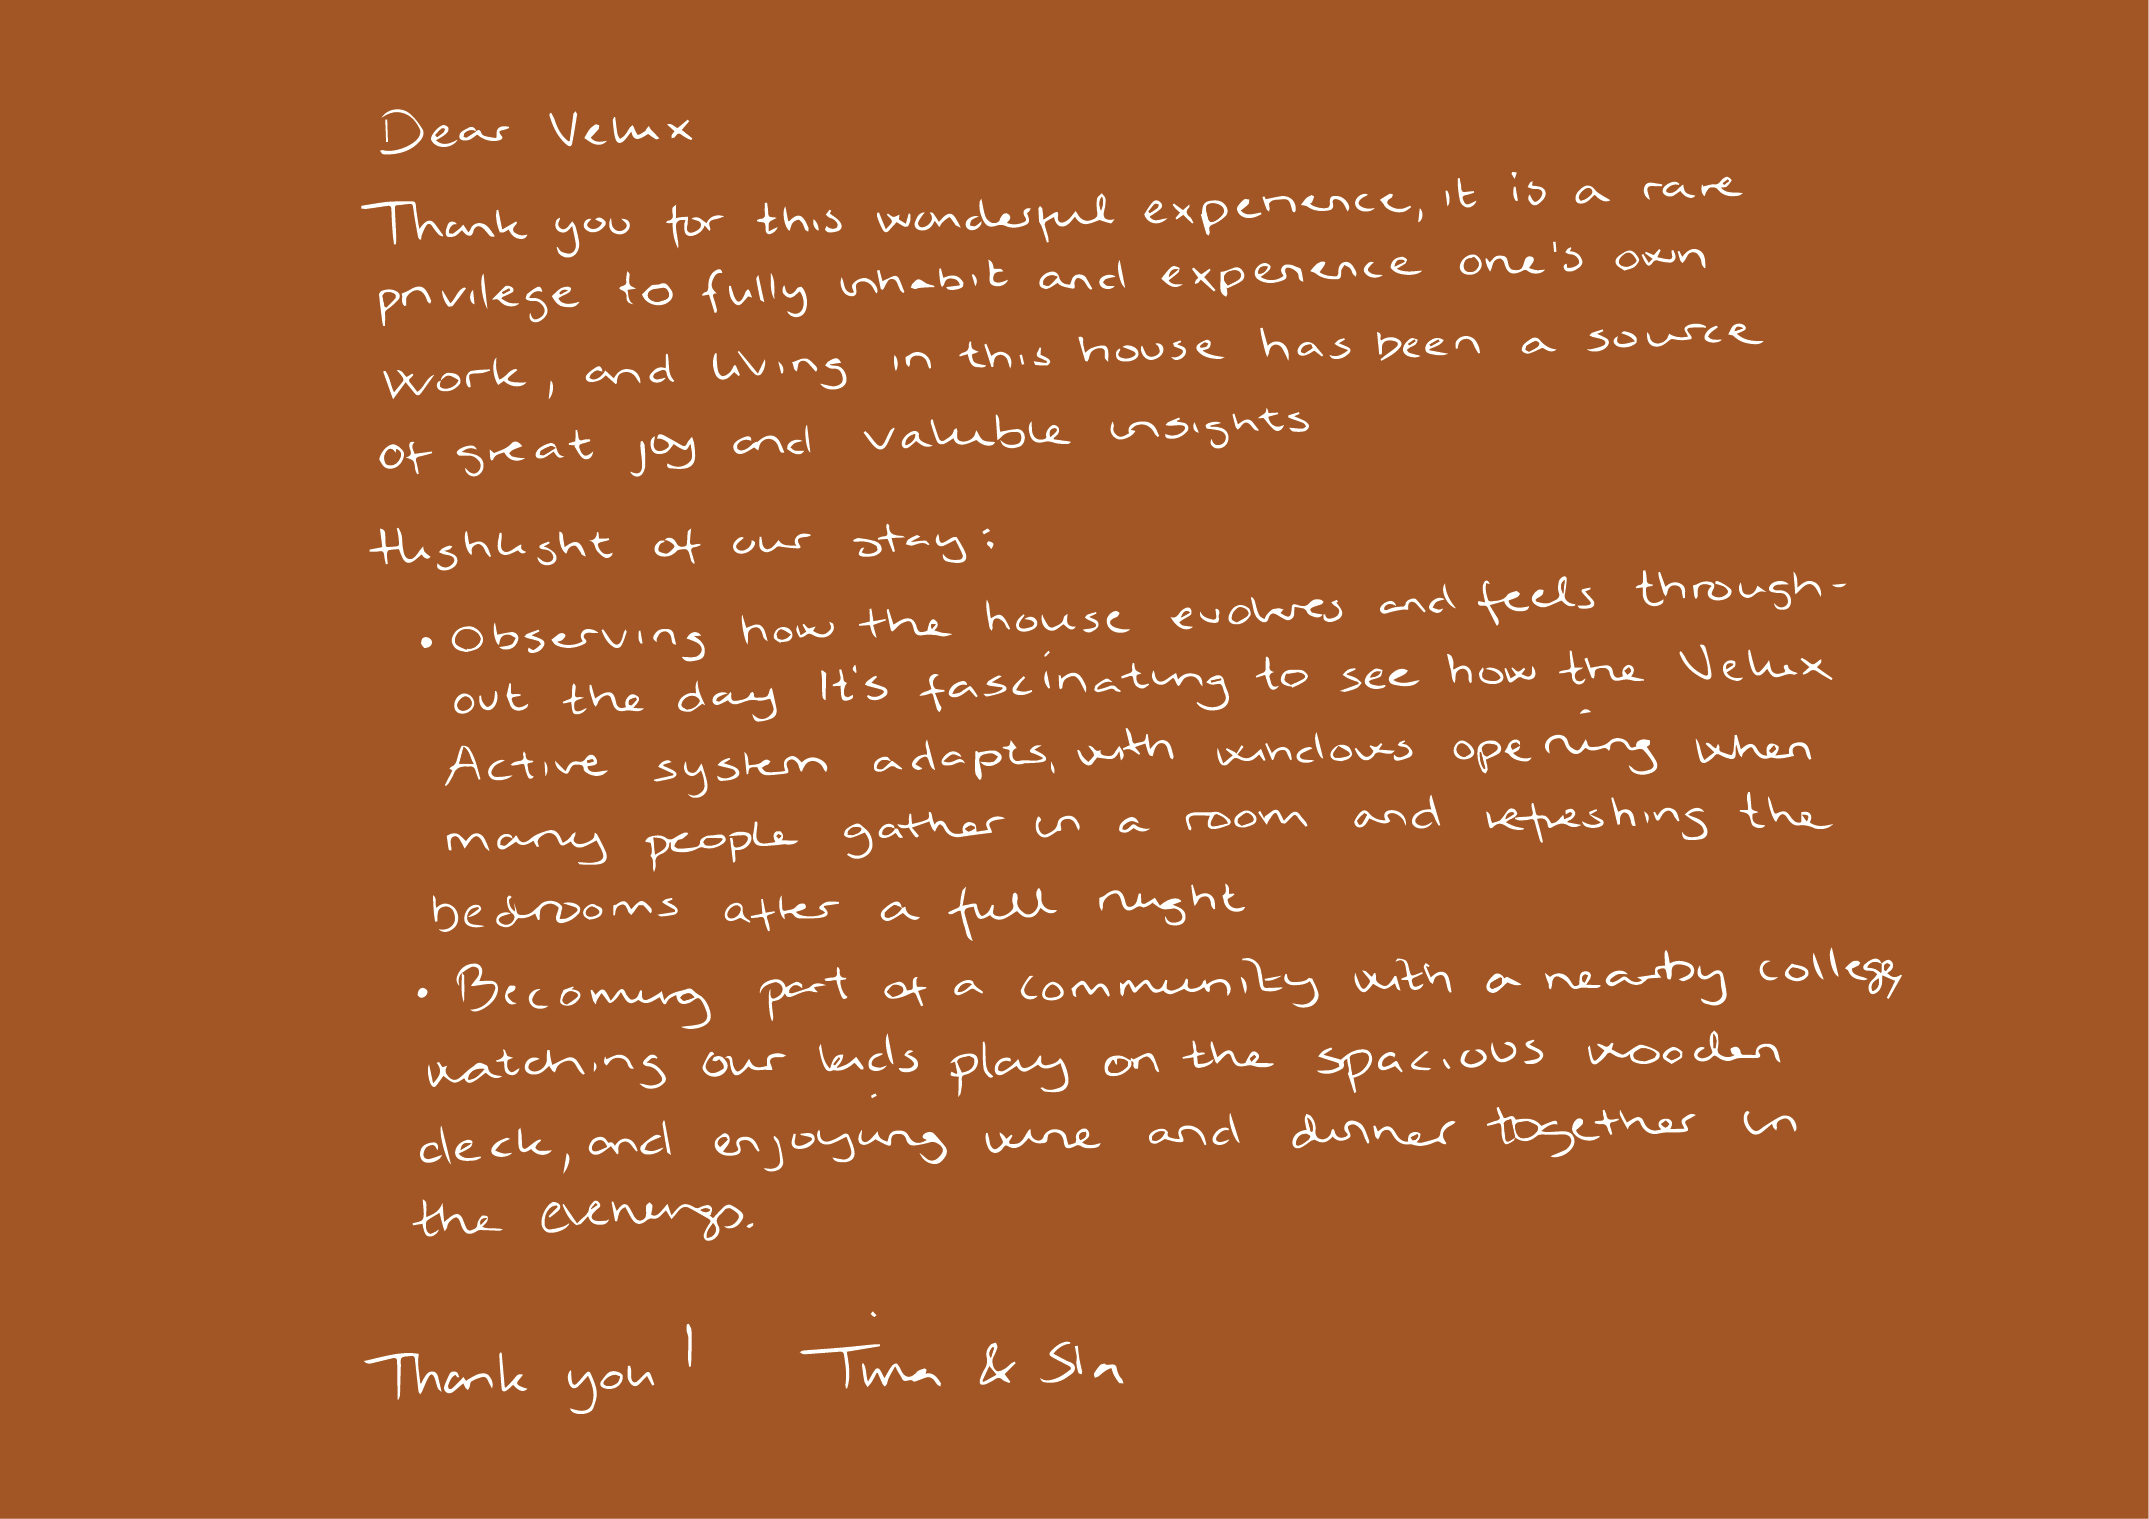 Dear Velux
Thank you for this wonderful experience, it is a rare
privilege to fully inhabit and experience one's own
work, and living in this house has been a source
of great joy and valuble insights
Highlight of our stay:
• Observing how the house evolves and feels through-
out the day It's fascinating to see how the Velux
Active system adapts, with windows opening when
many people gather in a room and refreshing the
bedrooms after a full night
• Becoming part of a community with a nearby college,
watching our kids play on the spacious wooden
deck, and enjoying wine and dinner together in
the evenings.
Thank you! Tina &